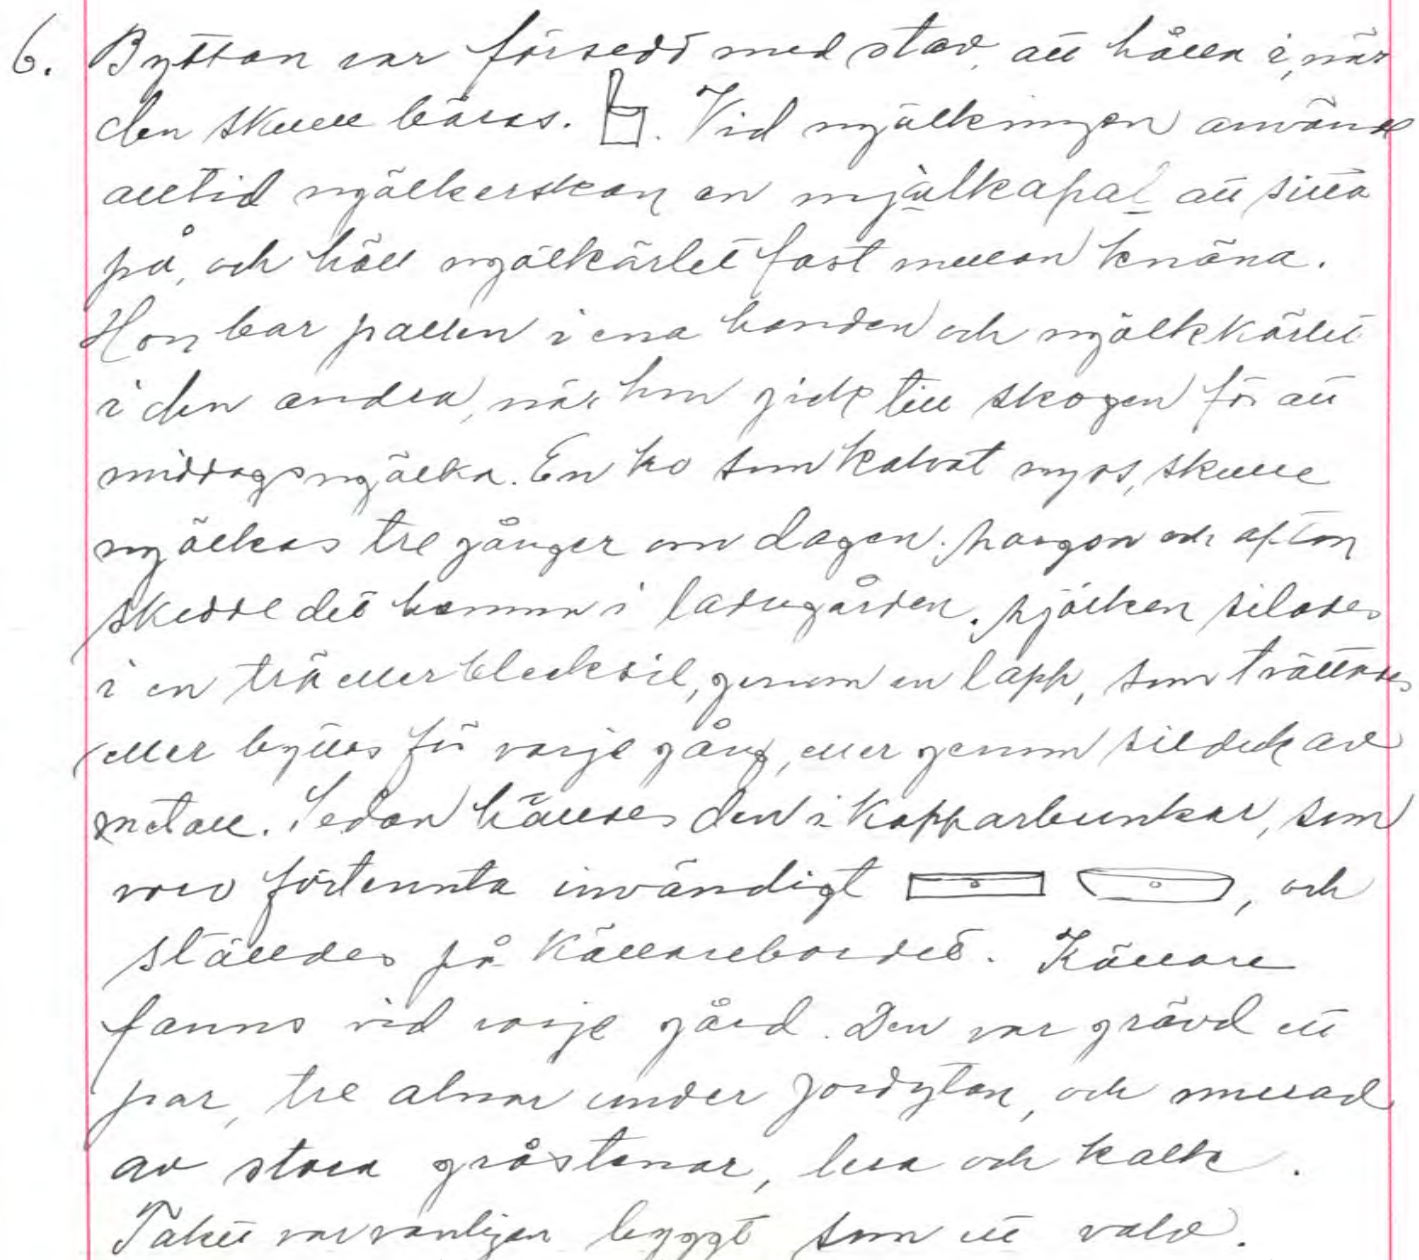 6. Byttan var försedd med stav, att hålla i, när
den skulle bäras. Vid mjölkningen använde
alltid mjölkerskan en mjölkapal att sitta
på, och höll mjölkkärlet fast mellan knäna.
Hon bar pallen i ena handen och mjölkkärlet
i den andra, när hon gick till skogen för att
middagsmjölka. En ko som kalvat nyss, skulle
mjölkas tre gånger om dagen. Morgon och afton
skedde det hemma i ladugården. Mjölken silades
i en trä eller blecksil, genom en lapp, som tvättades
eller byttes för varje gång, eller genom silduk av
metall. Sedan hälldes den i kopparbunkar, som
voro förtennta invändigt, och
ställdes på källarebordet. Källare
fanns vid varje gård. Den var grävd ett
par, tre alnar under jordytan, och murad
av stora gråstenar, lera och kalk.
Taket var vanligen byggt som ett valv.